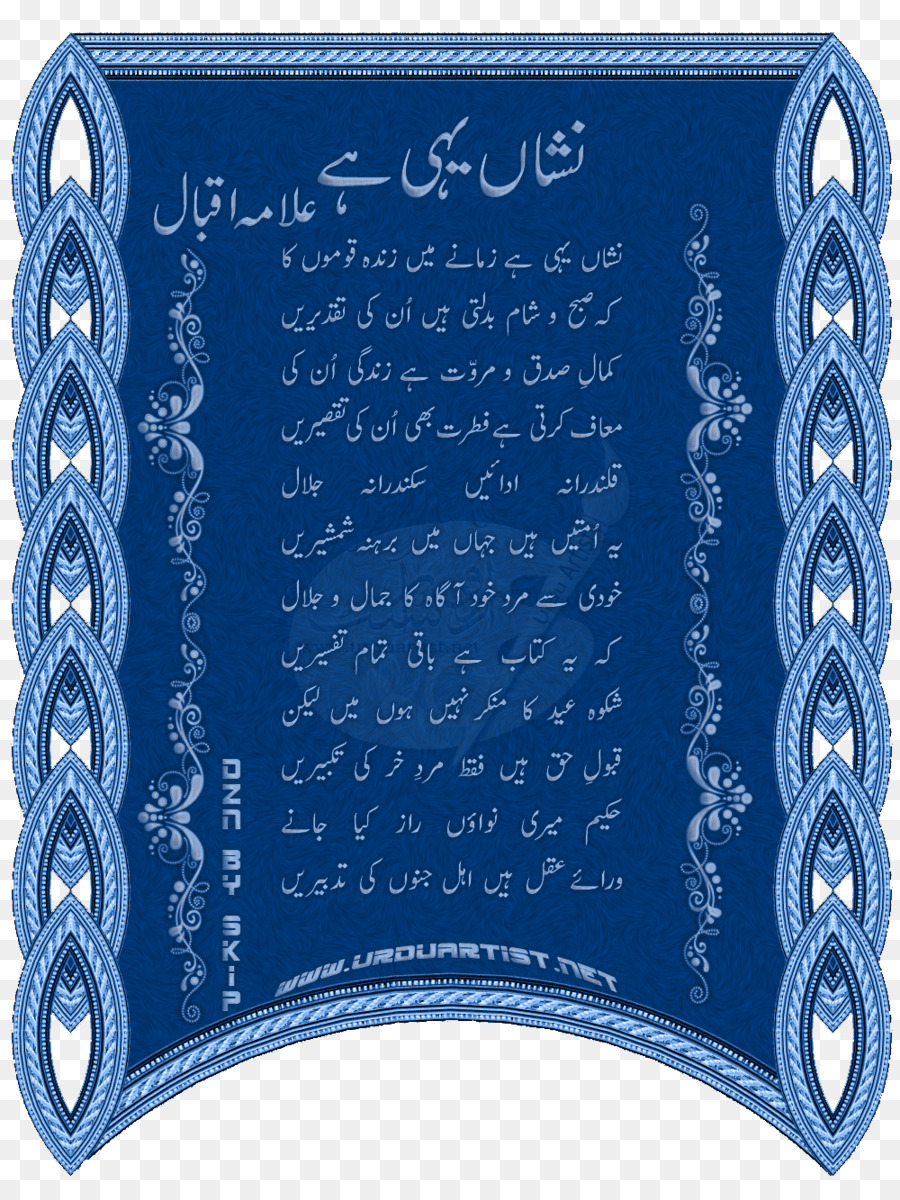 نشاں یہی ہے
علامہ اقبال
نشاں یہی ہے زمانے میں زندہ قوموں کا
کہ صبح و شام بدلتی ہیں اُن کی تقدیریں
کمالِ صدق و مروّت ہے زندگی اُن کی
معاف کرتی ہے فطرت بھی اُن کی تقصیریں
قلندرانہ ادائیں سکندرانہ جلال
یہ اُمتیں ہیں جہاں میں برہنہ شمشیریں
خودی سے مردِ خود آگاہ کا جمال و جلال
کہ یہ کتاب ہے باقی تمام تفسیریں
شکوہ عید کا منکر نہیں ہوں میں لیکن
قبولِ حق ہیں فقط مردِ خر کی تکبیریں
حکیم میری نواؤں راز کیا جانے
ورائے عقل ہیں اہل جنوں کی تدبیریں
DZN BY SKIP
www.URDUARTIST.NET